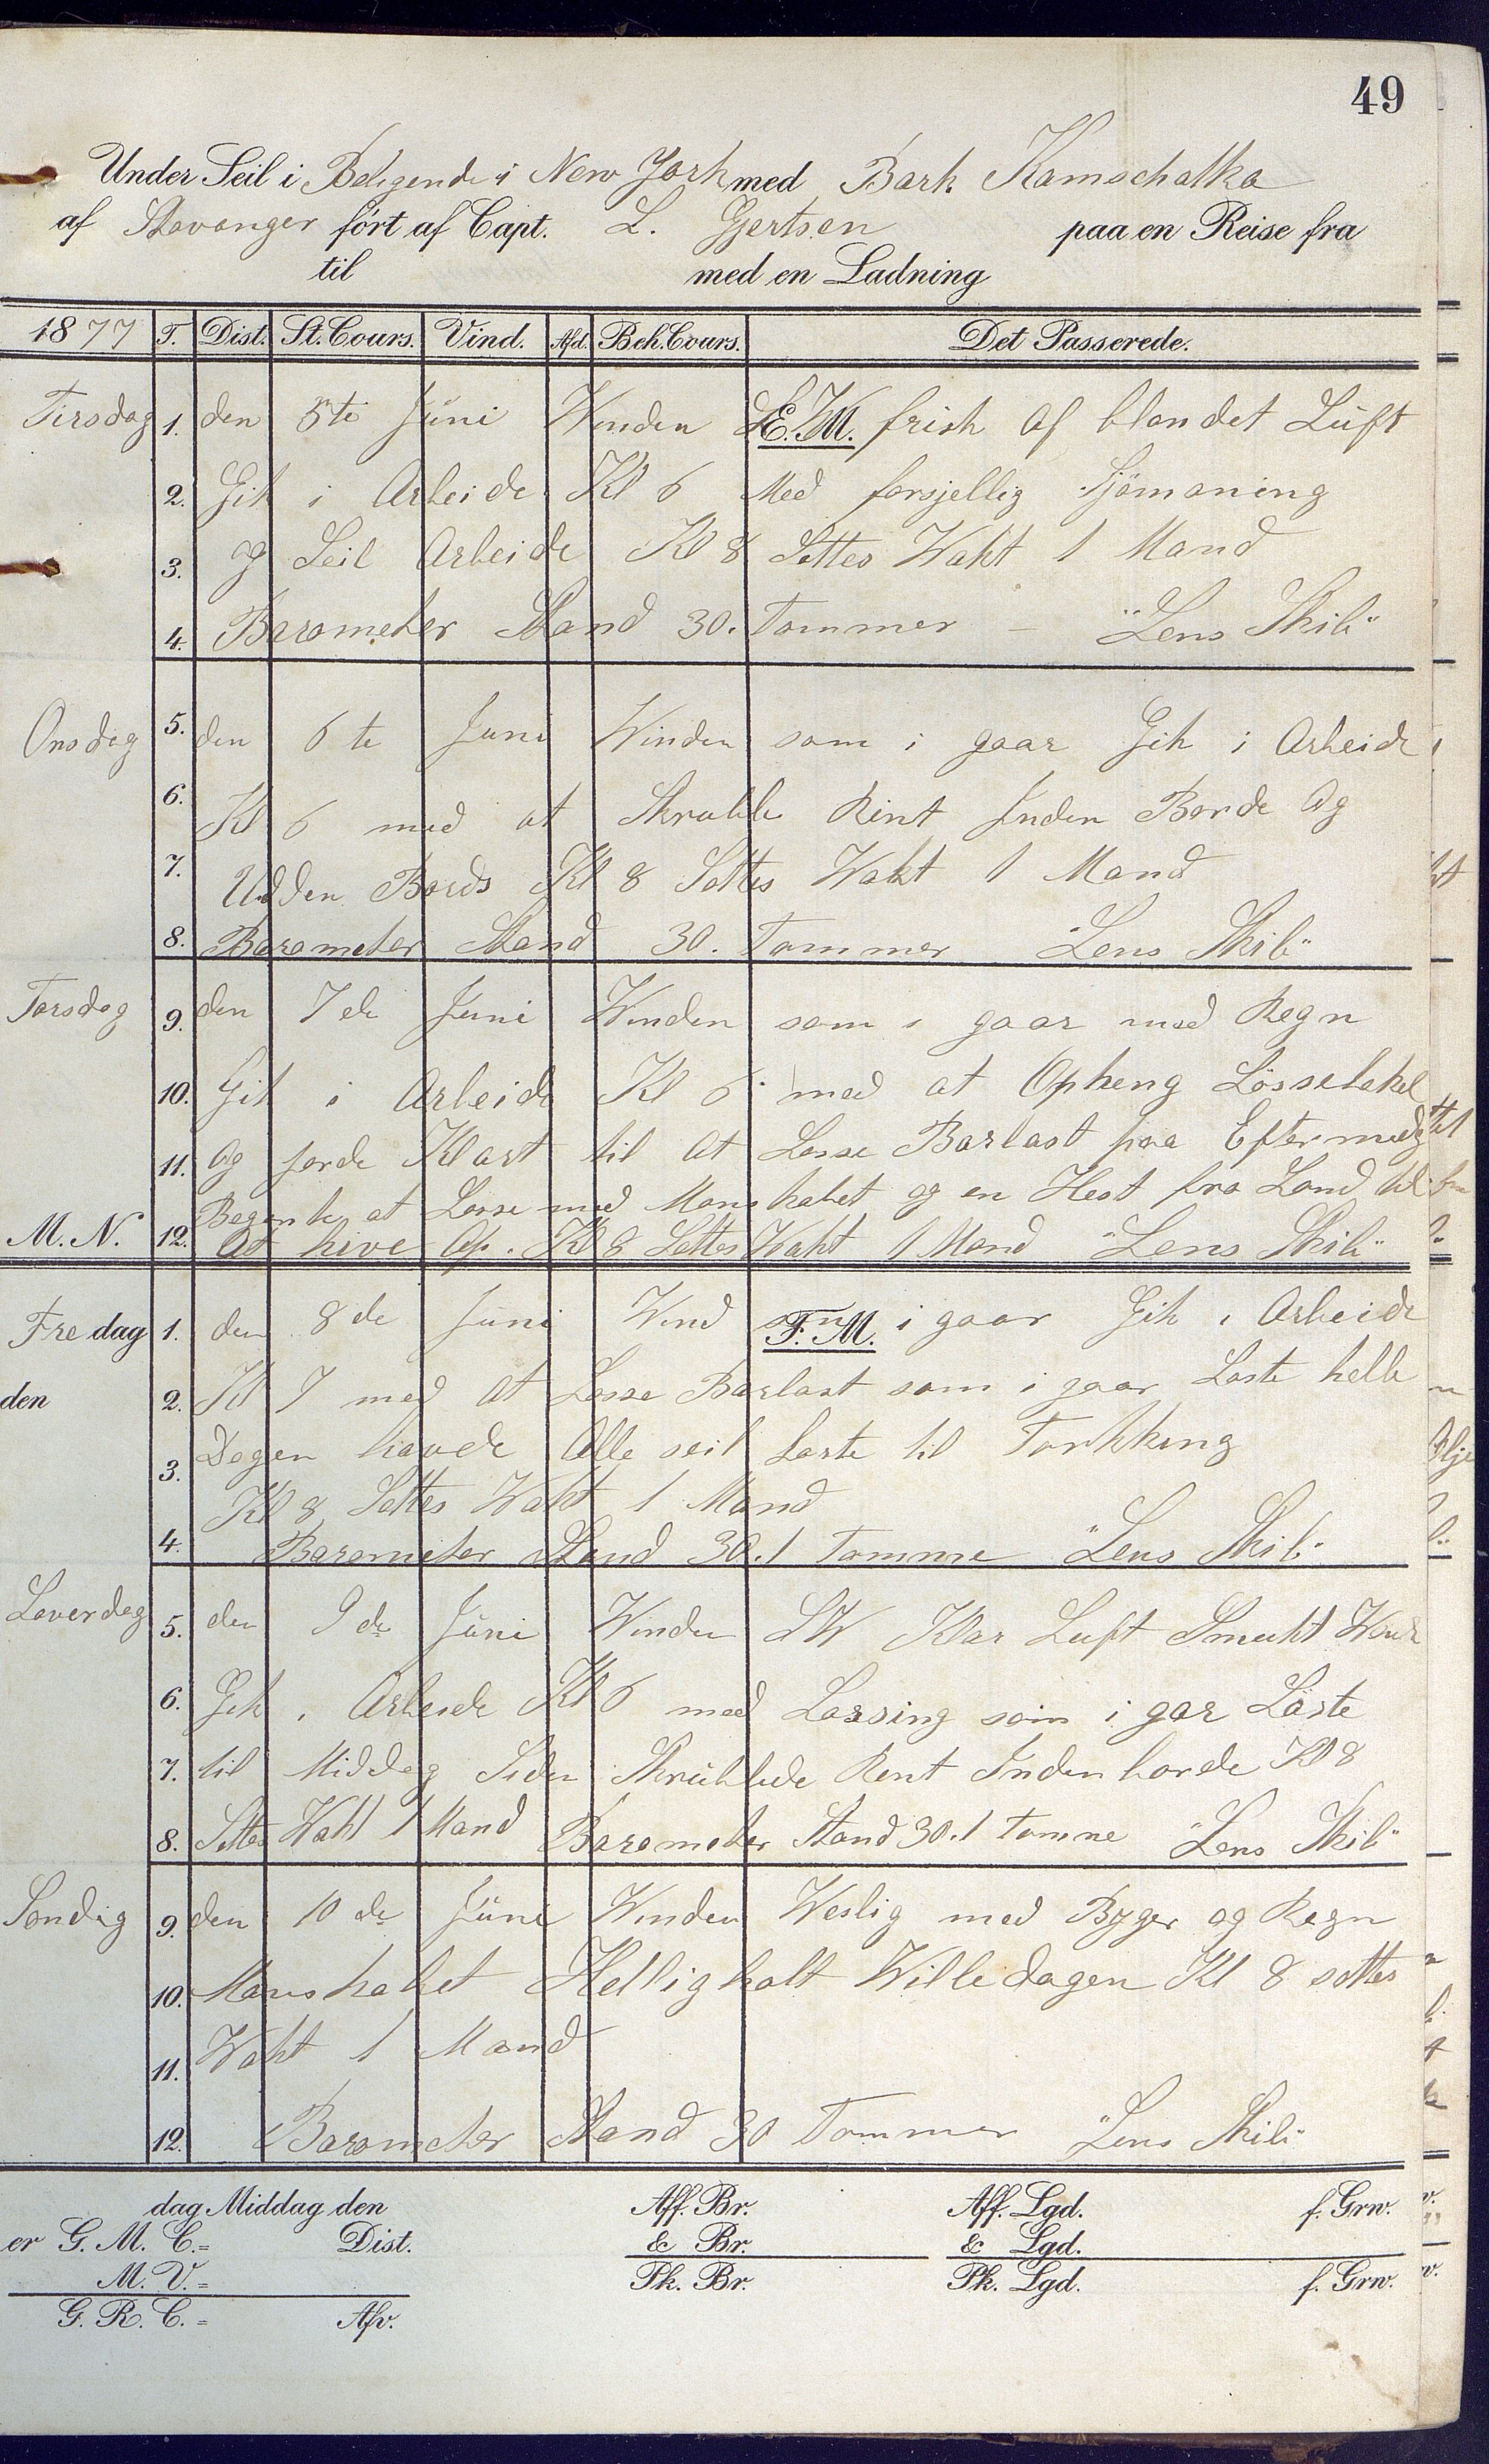 49
Under Seil i Beligende i New York med Bark Kamschatka
af Stavanger fört af Capt. L. Gjertsen paa en Reise fra
til med en Ladning
1877 T. Dist. St. Cours. Vind. Afd. Beh. Cours. Det Passerede.
E.M.
Tirsdag 1. den 5te Juni Winden frisk af blandet Luft
2. Gik i Arbeide Kl 6 Med forsjellig Sjömaning
3. og Seil Arbeide Kl 8 Settes Wakt 1 Mand
4. Barometer Stand 30. Tommer — "Lens Skib"
Onsdag 5. den 6te Juni Winden som i gaar Gik i Arbeide
6. Kl 6 med at Skrubbe Rint Inden Borde Og
7. Udden Bords Kl 8 Settes Wakt 1 Mand
8. Barometer Stand 30. Tommer "Lens Skib"
Torsdag 9. den 7de Juni Winden som i gaar med Regn
10. Gik i Arbeide Kl 6 med at Opheng Lössetakel
11. Og jorde Klart til At Losse Barlast paa Eftermidg
Begynte at Losse med Manskabet og en Hest fra Land til
M. N. 12. At hive Op. Kl 8 Settes Wakt 1 Mand "Lens Skib"
F. M.
Fredag 1. den 8de Juni Wind som i gaar Gik i Arbeide
den 2. Kl 7 med At Losse Barlast som i gaar Loste helle
3. Dagen havde Alle seil Loste til Torkking
Kl 8 Settes Wakt 1 Mand
4. Barometer Stand 30.1 Tomme "Lens Skib"
Loverdag 5. den 9de Juni Winden SW Klar Luft Smukt
6. Gik i Arbeide Kl 6 med Lossing som i gar Löste
7. til Middag Siden Skrubbede Rent Inden borde Kl 8
8. Settes Wakt 1 Mand Barometer Stand 30.1 Tomme "Lens Skib"
Sondag 9. den 10de Juni Winden Weslig med Byger og Regn
10. Manskabet Helligholt Willedagen Kl 8 settes
11. Wakt 1 Mand
12. Barometer Stand 30 Tommer "Lens Skib"
dag Middag den Aff. Br. Aff. Lgd. f. Grw.
er G. M. C.= Dist. & Br. & Lgd.
M. V.= Pk. Br. Pk. Lgd. f. Grw.
G. R. C.= Afv.